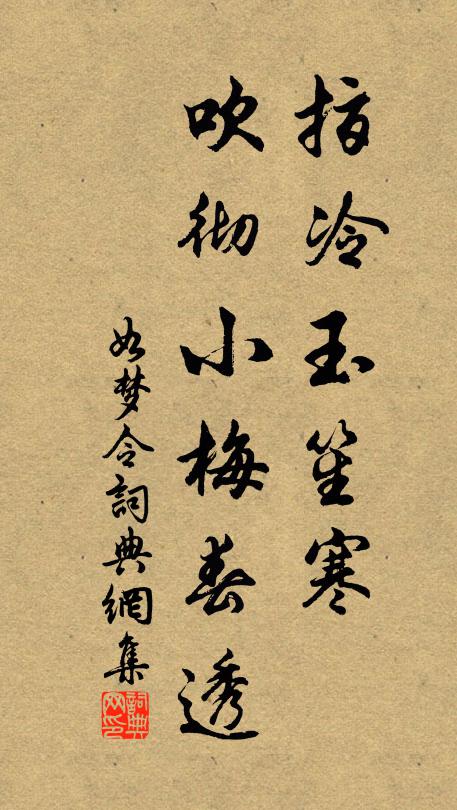 指冷玉笙寒
吹彻小梅春透
如梦令詞典網集
詞典网印